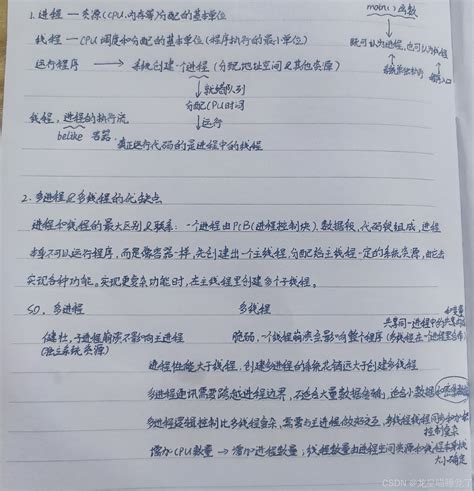 1. 进程 — 资源(CPU、内存等)分配的基本单位
main()函数
线程 — CPU调度和分配的基本单位(程序执行的最小单位)
既可认为进程,也可以为线程
运行程序 → 系统创建一个进程(分配地址空间&其他资源)
就绪队列
分配CPU时间
运行
线程,进程的执行流
belike 容器
真正运行代码的是进程中的线程
2. 多进程&多线程的优缺点
进程和线程的最大区别&联系:一个进程由PCB(进程控制块)、数据段、代码段组成,进程
本身不可以运行程序,而是像容器一样,先创建出一个主线程,分配给主线程一定的系统资源,
实现各种功能。实现更复杂功能时,在主线程里创建多个子线程。
SO, 多进程
多线程
共享同一进程中的
健壮,子进程崩溃不影响主进程
(独立系统资源)
脆弱,一个线程崩溃会影响整个程序(多线程在一个进程
进程性能大于线程,创建多进程的系统花销远大于创建多线程
多进程通讯需要跨越进程边界,不适合大量数据传输,适合小数据
多进程逻辑控制比多线程复杂,需要与主进程做好交互,多线程
控制复杂
增加CPU数量 → 增加进程数量;线程数量由进程空间资源和线程本身栈
大小确定
CSDN @龙星喵睡觉了